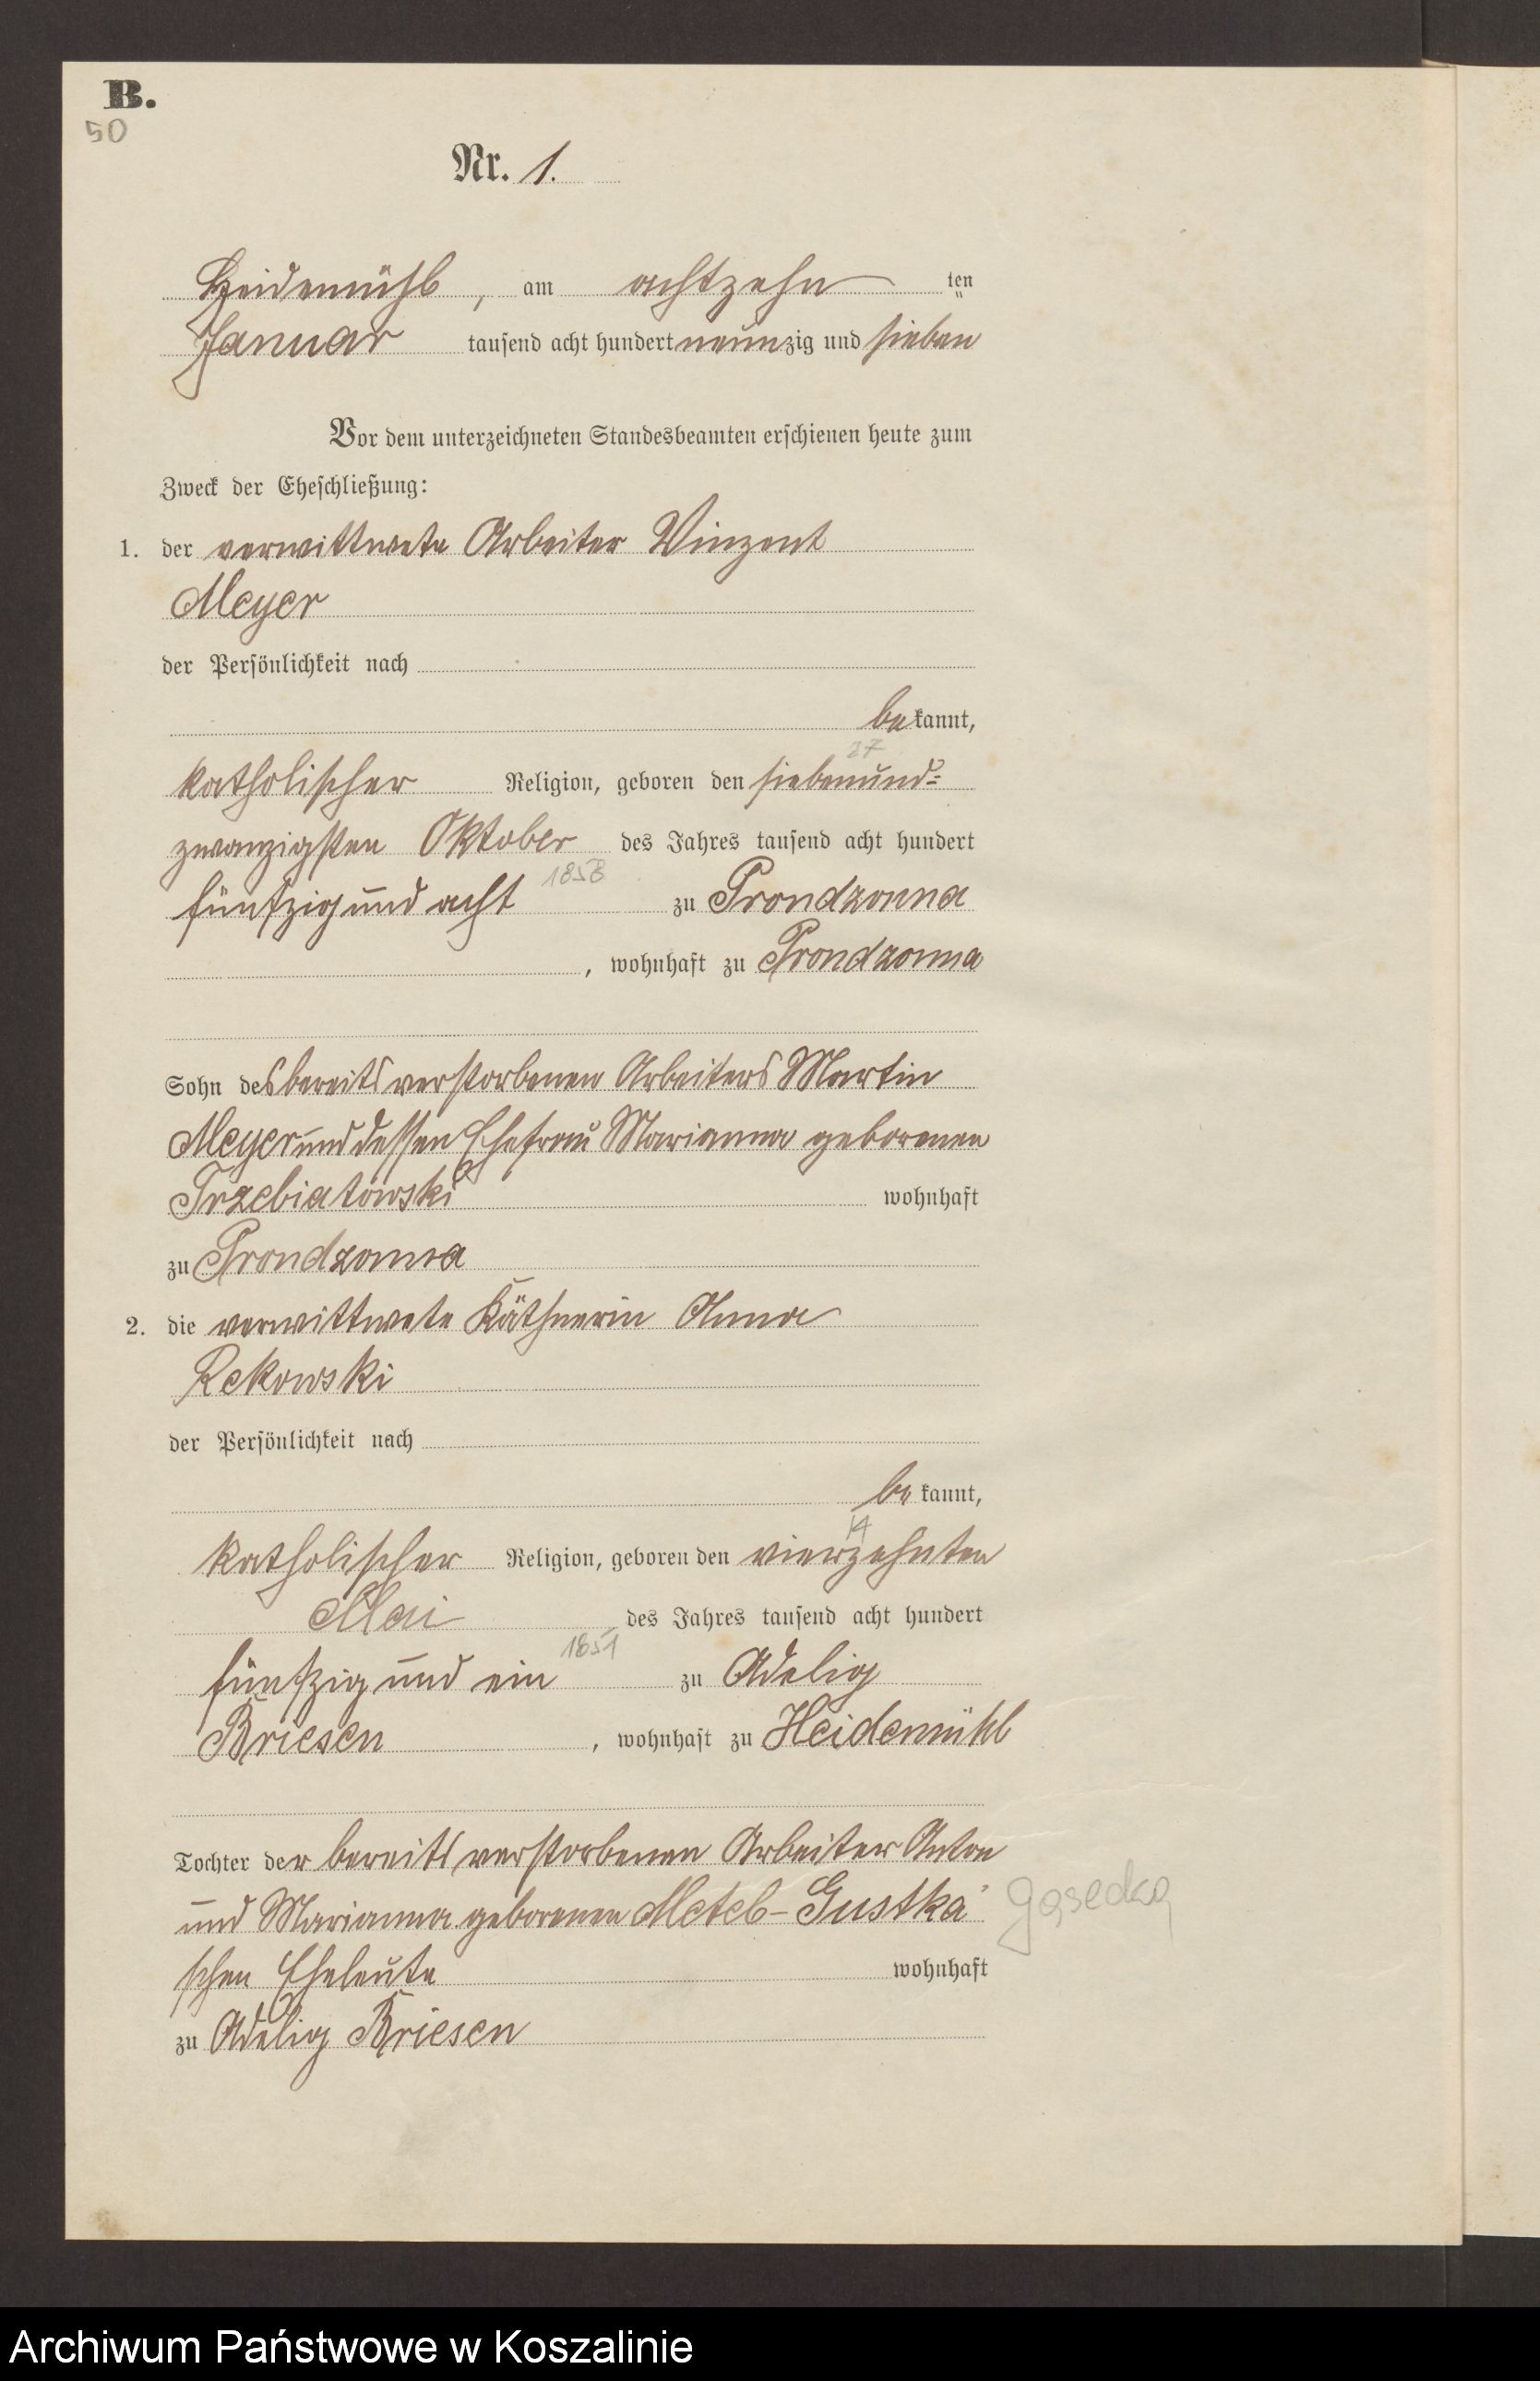 B.
50
Nr. 1.
Heidemühl, am achtzehn ten
Januar tausend acht hundert neunzig und sieben
Vor dem unterzeichneten Standesbeamten erschienen heute zum
Zweck der Eheschließung:
1. der verwittwete Arbeiter Vinzent
Meyer
der Persönlichkeit nach
be kannt,
27
katholischer Religion, geboren den siebenund=
zwanzigsten Oktober des Jahres tausend acht hundert
1858
fünfzig und acht zu Prondzonna
, wohnhaft zu Prondzonna
Sohn des bereits verstorbenen Arbeiters Martin
Meyer und dessen Ehefrau Marianna geborenen
Trzebiatowski wohnhaft
zu Prondzonna
2. die verwittwete Käthnerin Anna
Rekowski
der Persönlichkeit nach
be kannt,
14
katholischer Religion, geboren den vierzehnten
Mai des Jahres tausend acht hundert
1851
fünfzig und ein zu Adelig
Briesen, wohnhaft zu Heidemühl
Tochter der bereits verstorbenen Arbeiter Anton
und Marianna geborenen Meteb-Gustka'
schen Eheleute wohnhaft
zu Adelig Briesen
Archiwum Państwowe w Koszalinie